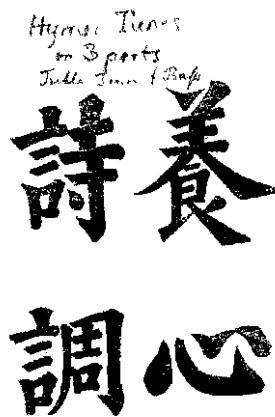 Hymn Tunes
in 3 parts
Treble Tenor & Bass
養心
詩調